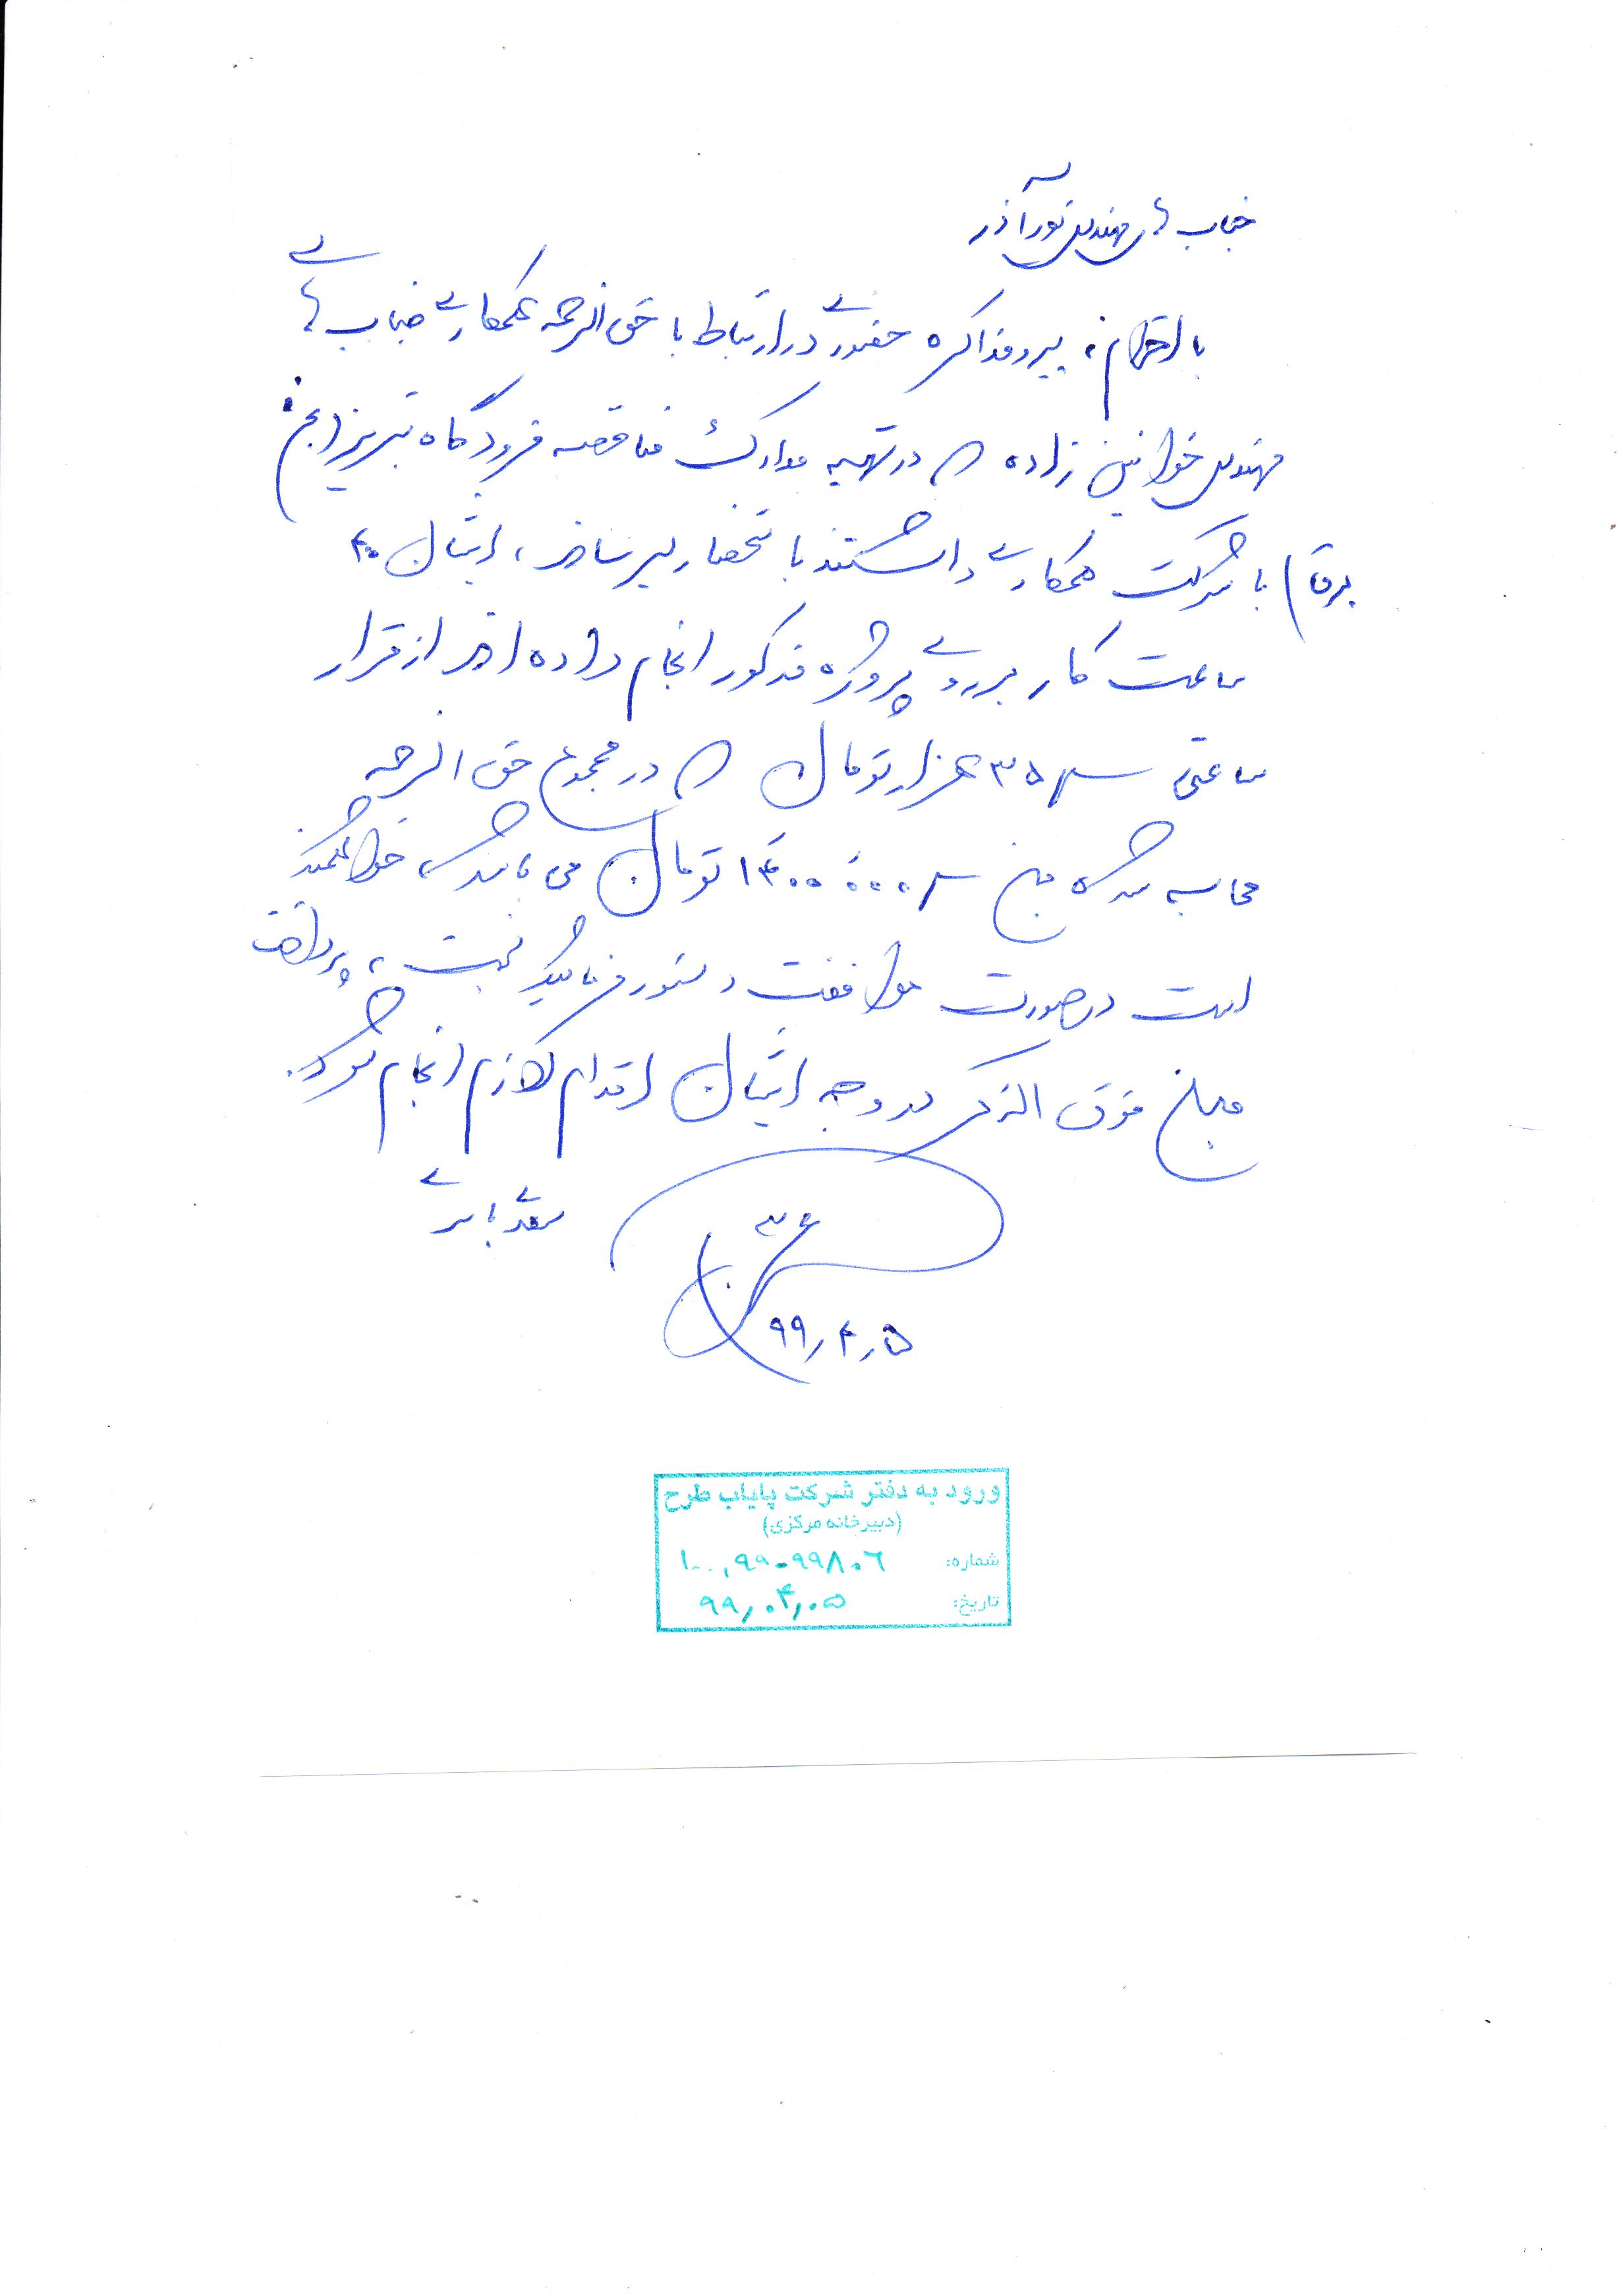 جناب آقای مهندس نورآذر
با احترام، پیرو مذاکره حضوری در ارتباط با حق الزحمه همکاری جناب آقای
مهندس خوانین زاده که در تهیه مدارک مناقصه فرودگاه تبریز (بخش
برق) با شرکت همکاری داشتند با استحضار میرساند، ایشان ۴۰
ساعت کار بر روی پروژه مذکور انجام داده اند از قرار
ساعتی ۳۵ هزار تومان که در مجموع حق الزحمه
محاسبه شده مبلغ ۱۴۰۰۰۰۰ تومان می باشد، خواهشمند
است در صورت موافقت دستور فرمائید نسبت به پرداخت
مبلغ فوق الذکر در وجه ایشان اقدام لازم انجام شود.
۹۹٫۴٫۵
ورود به دفتر شرکت پایاب طرح
(دبیرخانه مرکزی)
شماره: ۱۰۰٫۹۹-۹۹۸۰۶
تاریخ: ۹۹٫۰۴٫۰۵